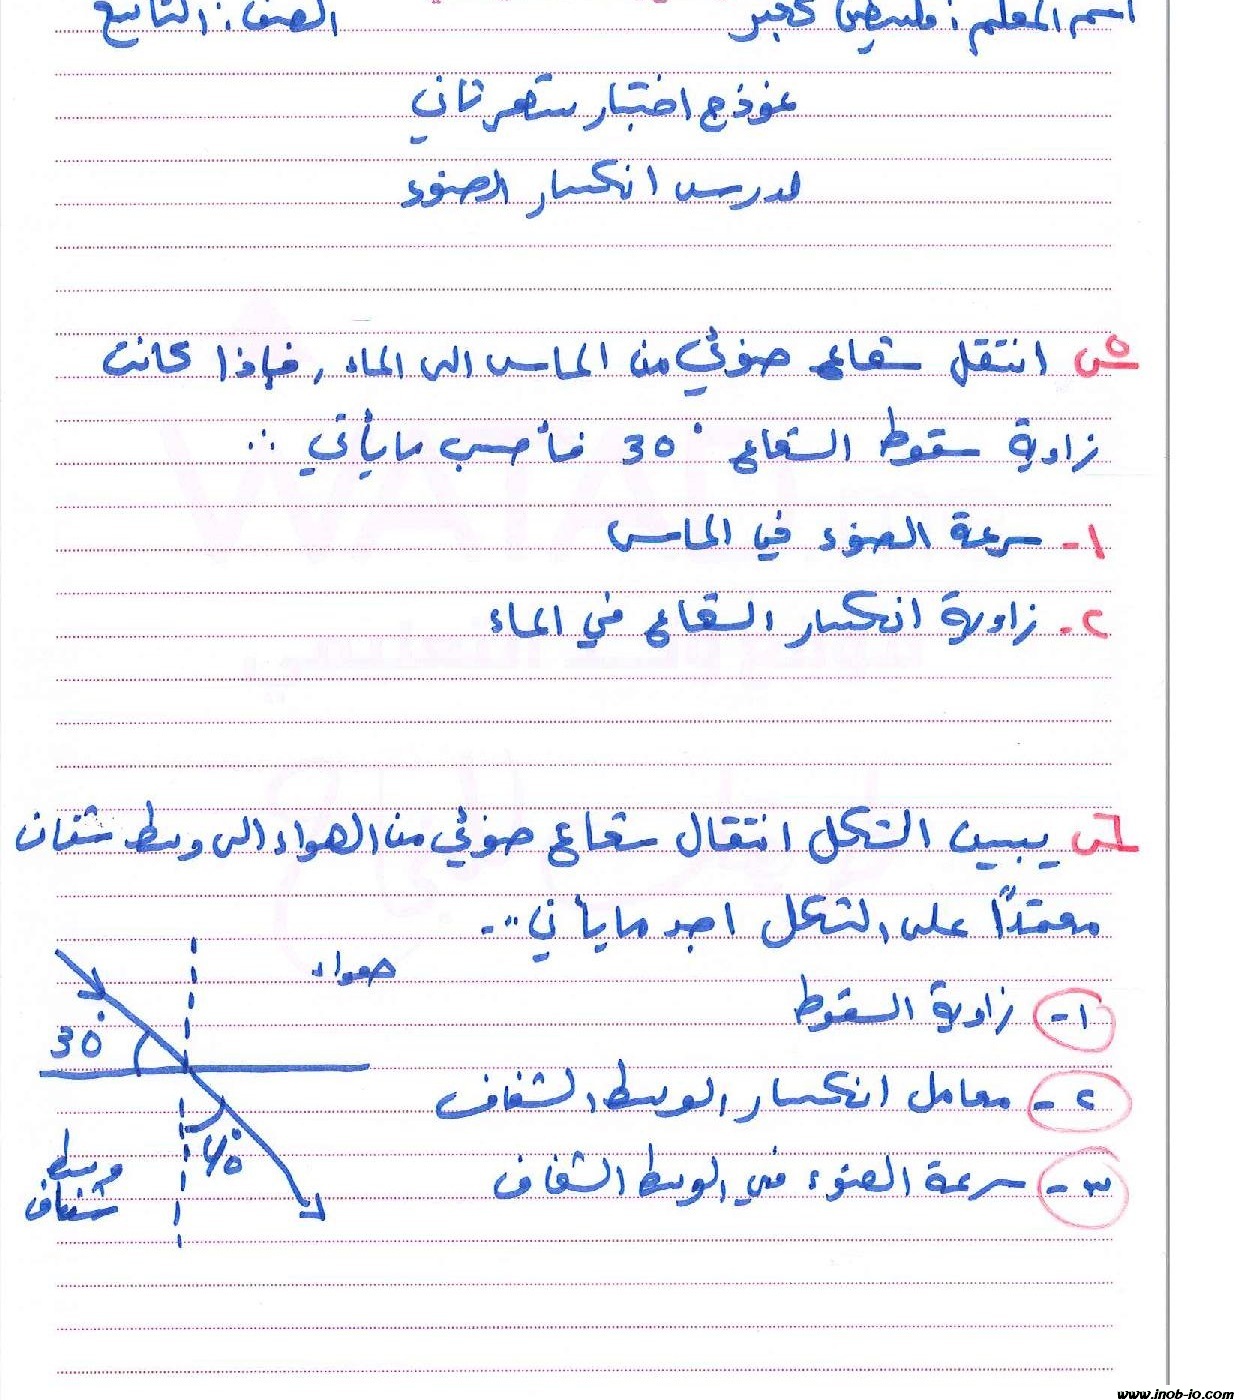 اسم المعلم : فلسطين الصف : التاسع
نموذج اختبار شهر ثاني
لدرس انكسار الضوء
س٥ انتقل شعاع ضوئي من الماس الى الماء , فإذا كانت
زاوية سقوط الشعاع 30° فأحسب ما يأتي :.
١- سرعة الضوء في الماس
٢- زاوية انكسار الشعاع في الماء
س٦ يبين الشكل انتقال شعاع ضوئي من الهواء الى وسط شفاف
معتمدًا على الشكل اجد ما يأتي :-
هواء
١- زاوية السقوط
30°
٢- معامل انكسار الوسط الشفاف
وسط
شفاف
٣- سرعة الضوء في الوسط الشفاف
www.inob-jo.com